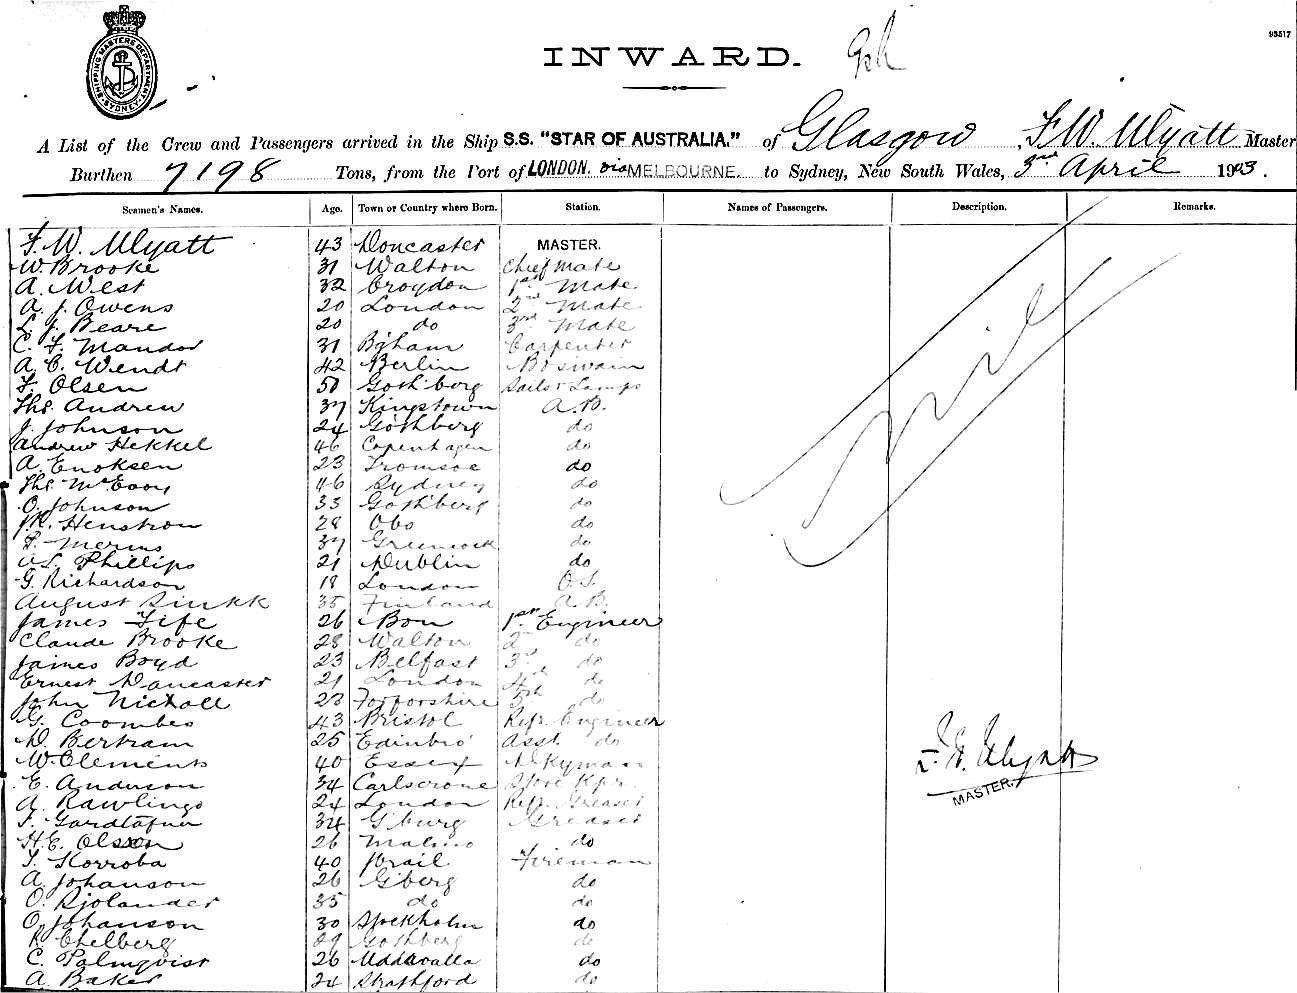 93517
SHIPPING MASTERS DEPARTMENT SYDNEY
INWARD.
A List of the Crew and Passengers arrived in the Ship S.S. "STAR OF AUSTRALIA." of Glasgow, F. W. Wyatt Master
Burthen 7198 Tons, from the Port of LONDON. via MELBOURNE. to Sydney, New South Wales, 3rd April 1903.
Seamen's Names. Age. Town or Country where Born. Station. Names of Passengers. Description. Remarks.
F. W. Wyatt 43 Doncaster MASTER.
W. Brooke 31 Walton Chief Mate
A. West 32 Croydon 1st Mate
A. J. Owens 20 London 2nd Mate
L. J. Beare 20 do 3rd Mate
C. F. Mandor 31 Carpenter
A. C. Wendt 42 Berlin Boswain
F. Olsen 51 Goth'borg Sails & Lamps
Ths. Andrew 37 Kingstown A.B.
J. Johnson 24 Gothberg do
Andrew Hekkel 46 Copenhagen do
A. Enoksen 23 Tromsoe do
Ths. McEvoy 46 Sydney do
O. Johnson 33 Gothberg do
Henstrom 28 Obo do
37 Greenock do
Phillips 21 Dublin do
G. Richardson 18 London O.S.
August Sinkk 35 Finland A.B.
James Fife 26 Bon 1st Engineer
Claude Brooke 28 Walton 2nd do
James Boyd 23 Belfast 3rd do
Ernest Dancaster 21 London 4th do
John Nicholl 23 Forforshire 5th do
G. Coombes 43 Bristol Refr. Engineer
D. Bertram 25 Edinbro' Asst. do
W. Clements 40 Essex Dkyman
E. Anderson 34 Carlscrone Store Kpr.
A. Rawlings 24 London Refr. Greaser
F. 34 G'burg Greaser
H. E. Olsson 26 Malmo do
T. Korroba 40 Fireman
A. Johanson 26 G'berg do
O. Sjolander 35 do do
O. Johanson 30 Stockholm do
K. Ehelberg 29 Gothberg do
C. Palmqvist 26 Uddavalla do
A. Baker 24 Strathford do
nil
F. W. Wyatt
MASTER.